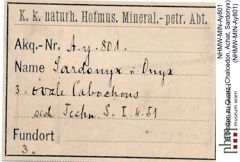 K. k. naturh. Hofmus. Mineral.- petr. Abt.
Akq.-Nr. A.y. 801.
Name Sardonyx u Onyx
3 ovale Cabochons
sieh Techn. S. I. 4. 51
Fundort
3.
NHMW-MIN-Ay801
zu Quarz (Chalcedon, Achat, Sardonyx)
(NHMW-MIN-Ay801)
nhm
museum wien